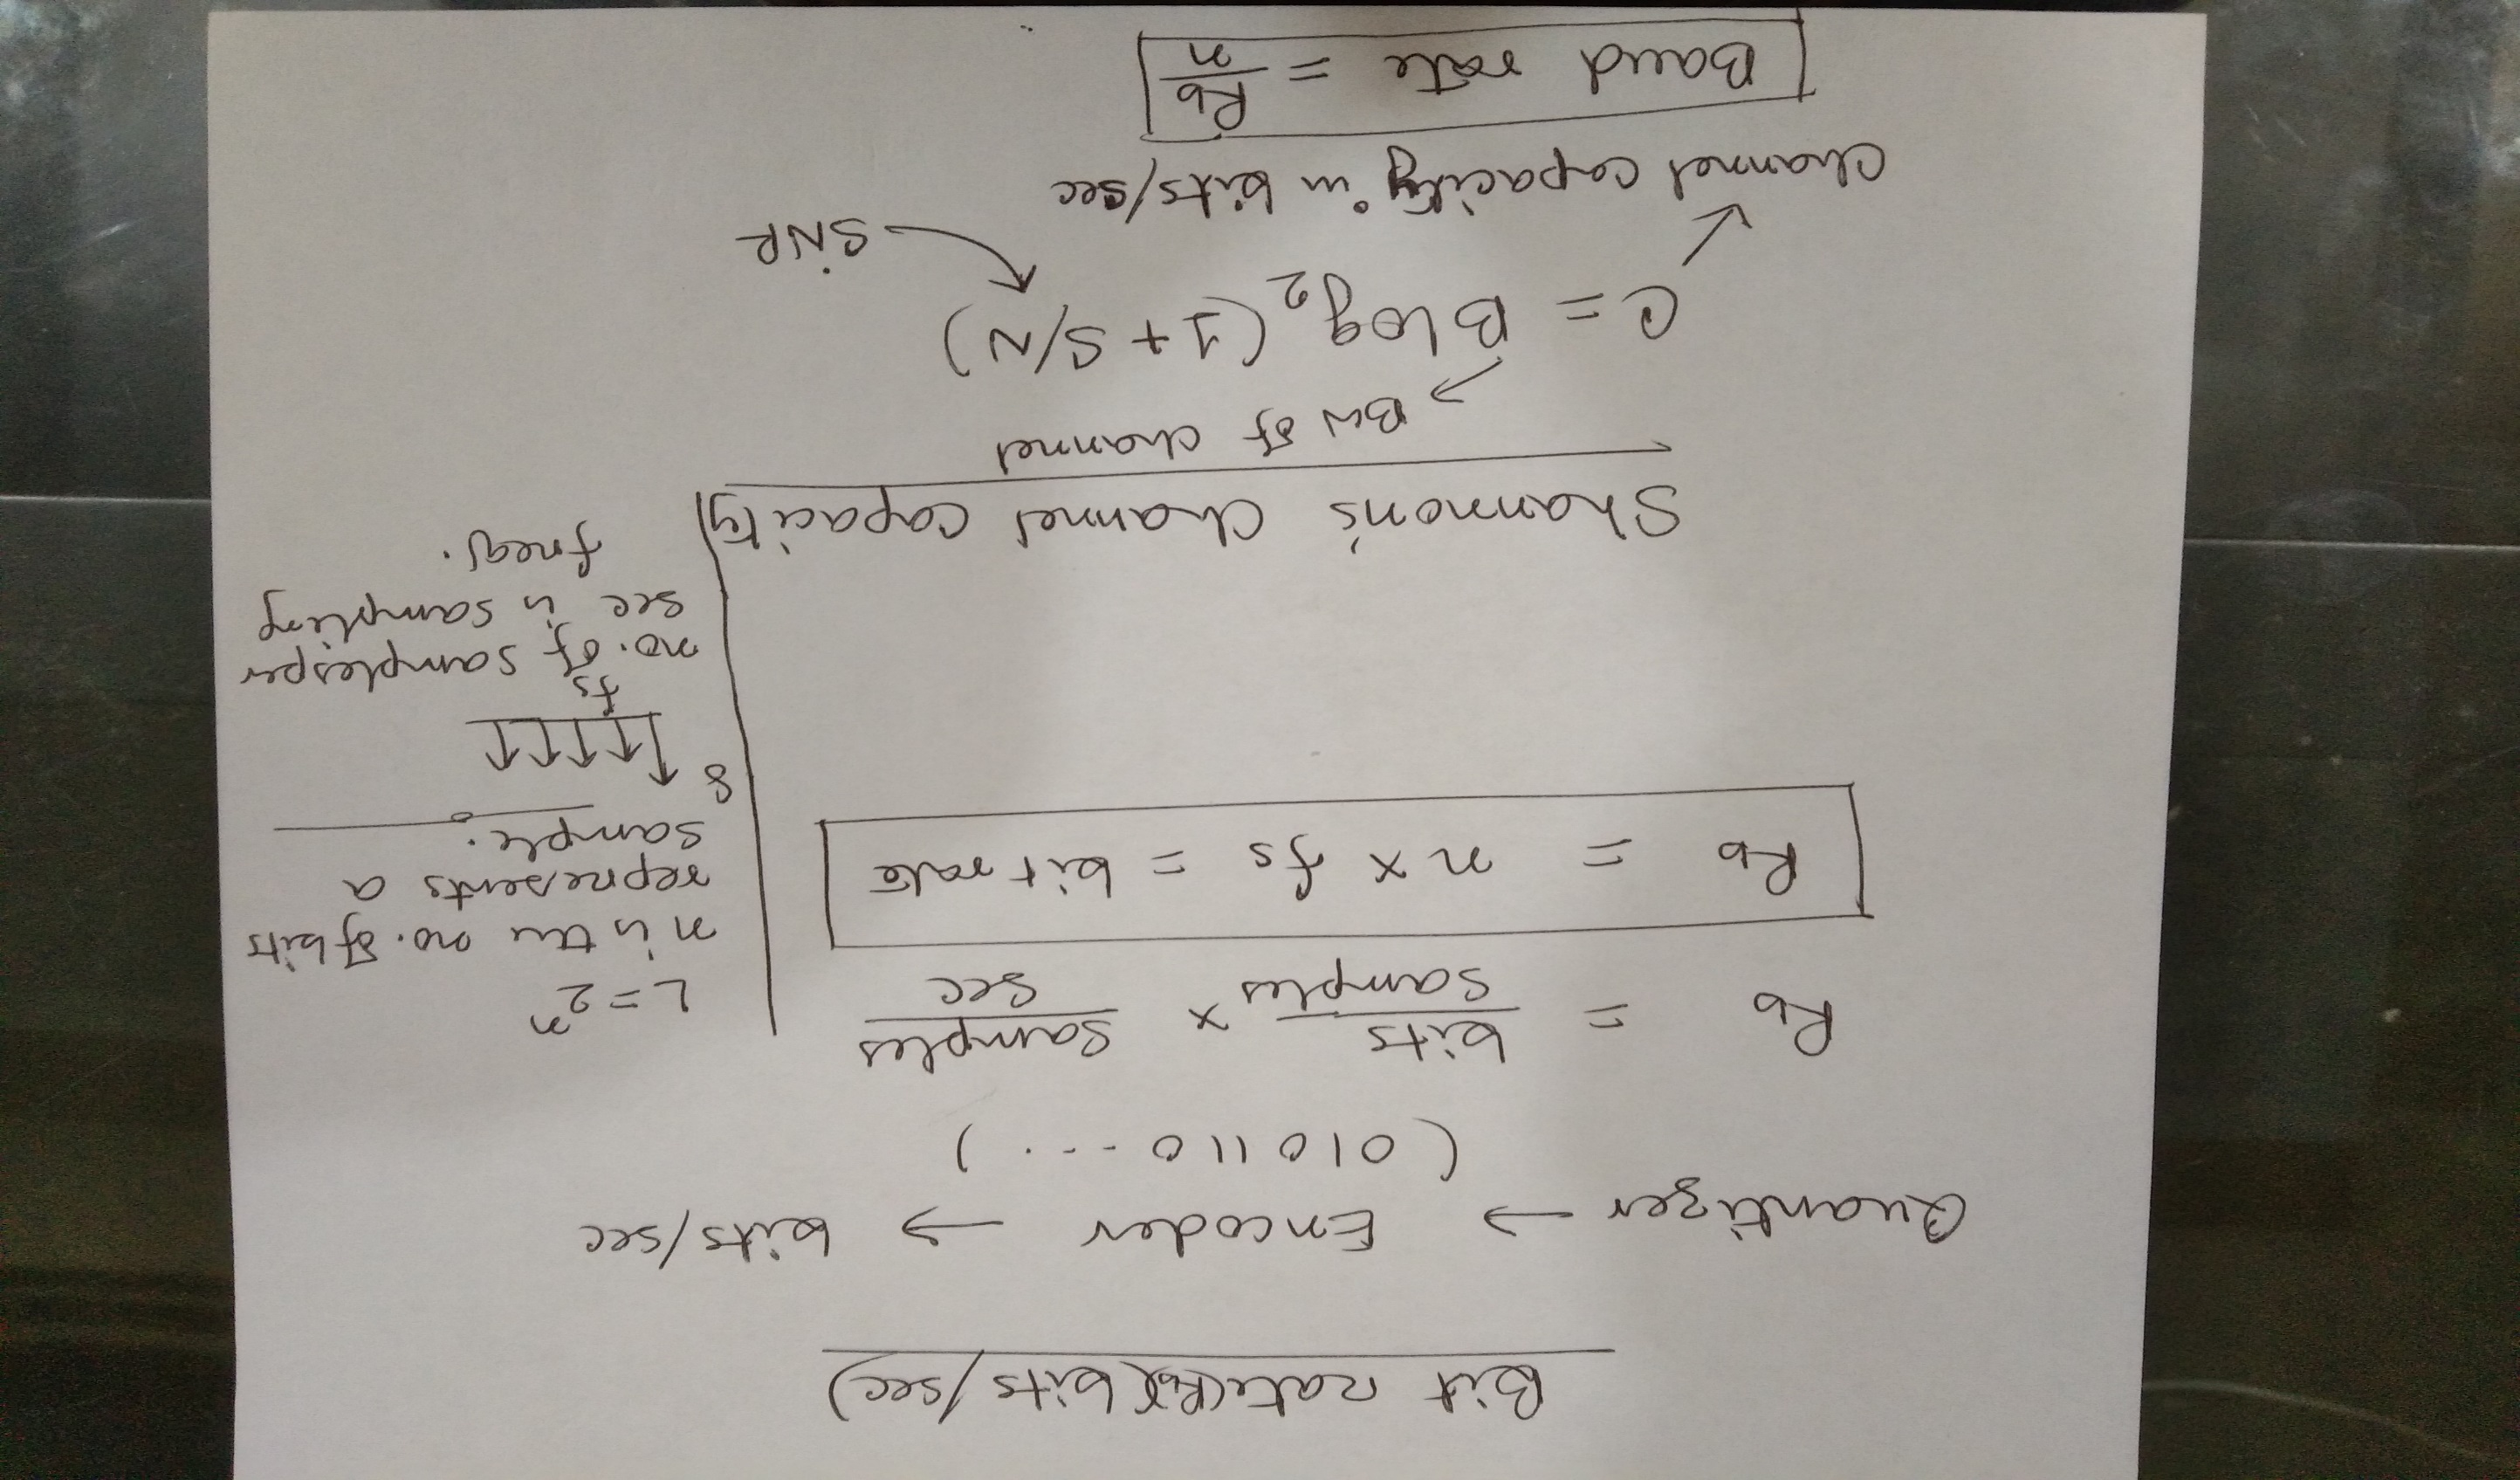 Bit rate(Rb)(bits/sec)
Quantizer → Encoder → bits/sec
(010110 ---.)
Rb = bits/samples × samples/sec
Rb = n × fs = bit rate
L = 2^n
n is the no. of bits
represents a
sample.
8
fs
no. of samples per
sec is sampling
freq.
Shannon's channel capacity
→ BW of channel
C = B log2 (1 + S/N)
SNR
channel capacity in bits/sec
Baud rate = Rb/n